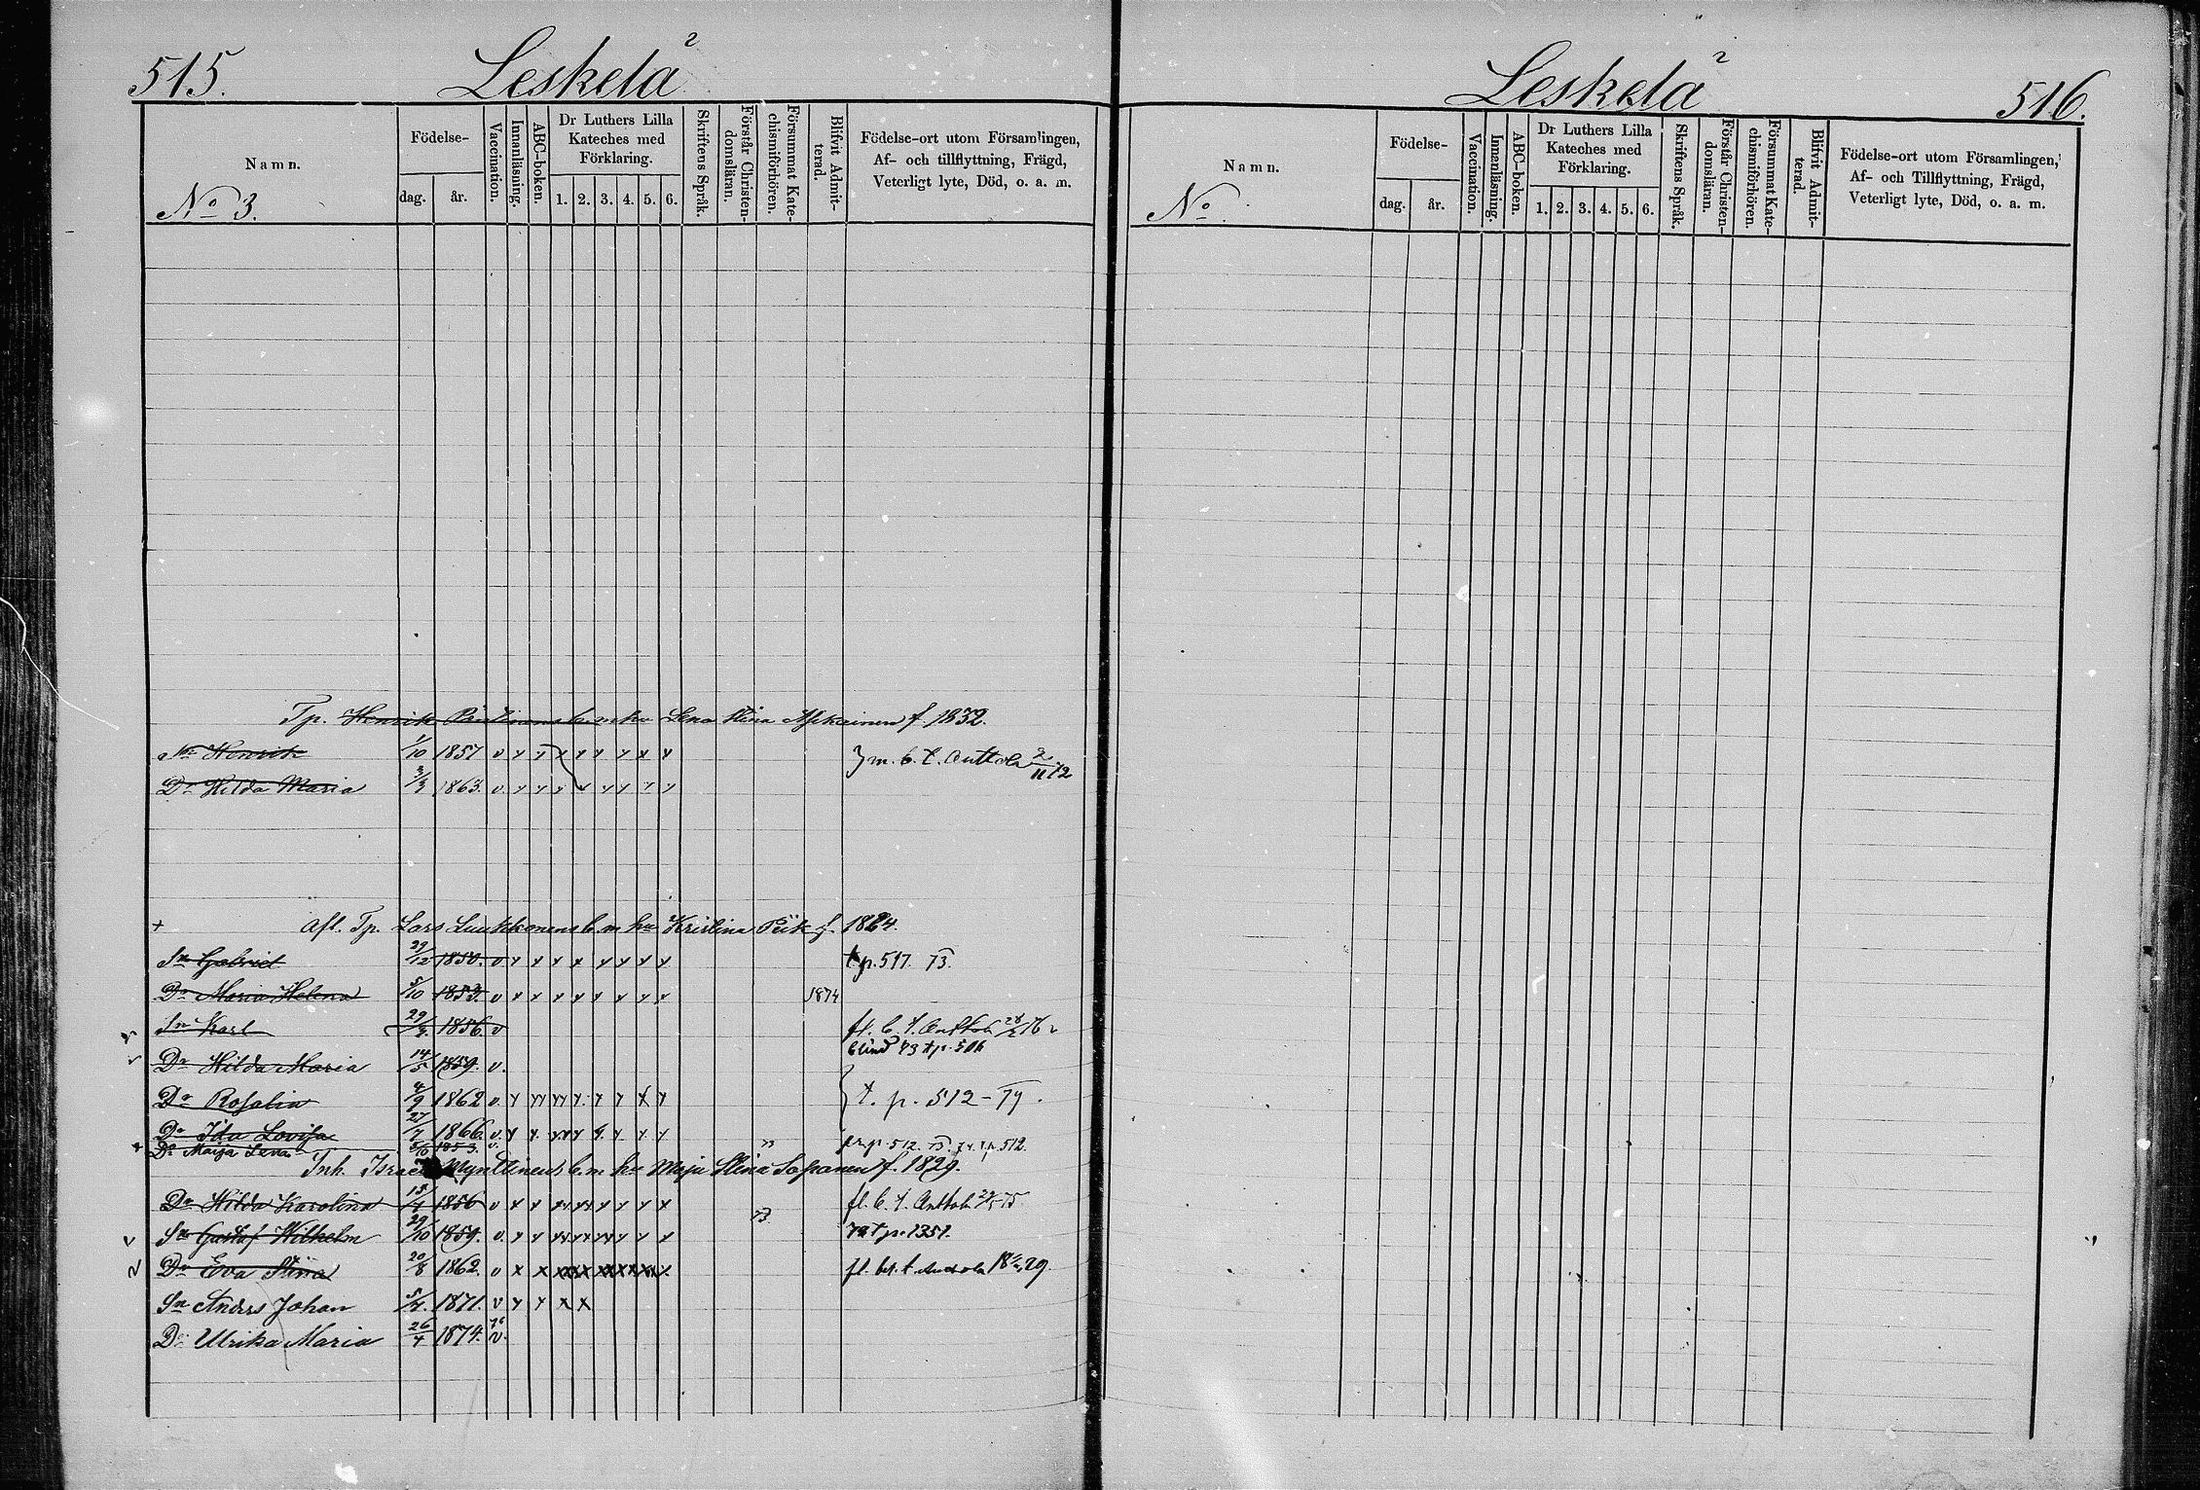 515.
Leskelä 2
Namn.
No 3.
Födelse-
dag.
år.
Vaccination.
Innanläsning.
ABC-boken.
Dr Luthers Lilla
Kateches med
Förklaring.
1. 2. 3. 4. 5. 6.
Skriftens Språk.
Förstår Christen-
domsläran.
Försummat Kate-
chismiförhören.
Blifvit Admit-
terad.
Födelse-ort utom Församlingen,
Af- och tillflyttning, Frägd,
Veterligt lyte, Död, o. a. m.
Tp. Henrik m hu Lena Stina f. 1832.
Sn Henrik 1/10 1857 v } m. b. t. Anttola 2/11 72
Dr Hilda Maria 3/3 1863. v
+ Afl. Tp. Lars Luukkonens b. m hu Kristina f. 1824.
Sn Gabriel 29/12 1850. v t. p. 517. 73.
Dr Maria Helena 5/10 1853. v 1874
Sn Karl 1856. v fl. b. t. Anttola 76
blind 73 tp. 506
Dr Hilda Maria 14/5 1859. v.
Dr Rosalia 4/9 1862 v } t. p. 512 - 79.
Dr Ida Lovisa 27/7 1866. v.
Dr Maija Lena 5/10 1853. v. p. 512. 75. 512.
Inh. Israel Myntinens b. m hu Maja Stina Sopanen f. 1829.
Dr Hilda Karolina 1856 v fl. b. t. Anttola 75
Sn Gustaf Wilhelm 29/10 1859. v. 73. 79 t p. 1351.
Dr Eva Stina 20/8 1862. v fl. bet. t. Anttola 79.
Sn Anders Johan 5/7. 1871. v
Dr Ulrika Maria 26/4 1874. 76 v.
Leskelä 2
516.
Namn.
No.
Födelse-
dag.
år.
Vaccination.
Innanläsning.
ABC-boken.
Dr Luthers Lilla
Kateches med
Förklaring.
1. 2. 3. 4. 5. 6.
Skriftens Språk.
Förstår Christen-
domsläran.
Försummat Kate-
chismiförhören.
Blifvit Admit-
terad.
Födelse-ort utom Församlingen,
Af- och Tillflyttning, Frägd,
Veterligt lyte, Död, o. a. m.